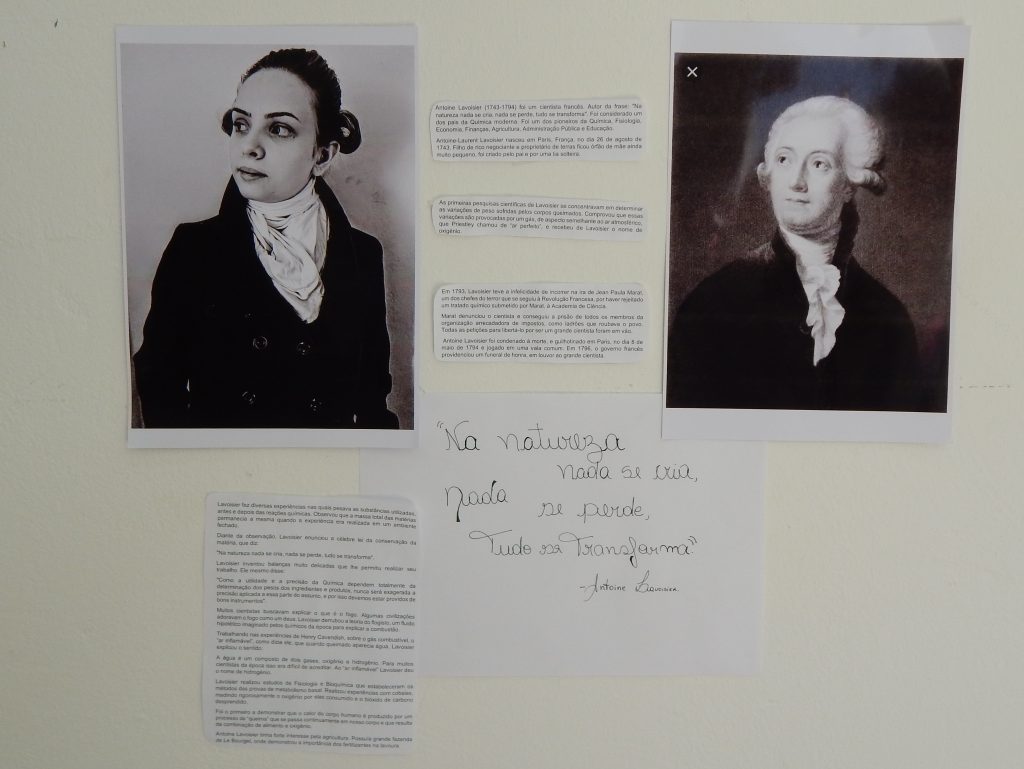 Antoine Lavoisier (1743-1794) foi um cientista francês. Autor da frase: "Na
natureza nada se cria, nada se perde, tudo se transforma". Foi considerado um
dos pais da Química moderna. Foi um dos pioneiros da Química, Fisiologia,
Economia, Finanças, Agricultura, Administração Pública e Educação.
Antoine-Laurent Lavoisier nasceu em Paris, França, no dia 26 de agosto de
1743. Filho de rico negociante e proprietário de terras ficou órfão de mãe ainda
muito pequeno, foi criado pelo pai e por uma tia solteira.
As primeiras pesquisas científicas de Lavoisier se concentravam em determinar
as variações de peso sofridas pelos corpos queimados. Comprovou que essas
variações são provocadas por um gás, de aspecto semelhante ao ar atmosférico,
que Priestley chamou de "ar perfeito", e recebeu de Lavoisier o nome de
oxigênio.
Em 1793, Lavoisier teve a infelicidade de incorrer na ira de Jean Paule Marat,
um dos chefes do terror que se seguiu à Revolução Francesa, por haver rejeitado
um tratado químico submetido por Marat, à Academia de Ciência.
Marat denunciou o cientista e conseguiu a prisão de todos os membros da
organização arrecadadora de impostos, como ladrões que roubava o povo.
Todas as petições para libertá-lo por ser um grande cientista foram em vão.
Antoine Lavoisier foi condenado à morte, e guilhotinado em Paris, no dia 8 de
maio de 1794 e jogado em uma vala comum. Em 1796, o governo francês
providenciou um funeral de honra, em louvor ao grande cientista.
"Na natureza
nada se cria,
nada se perde,
Tudo se Transforma"
-Antoine Lavoisier
Lavoisier fez diversas experiências nas quais pesava as substâncias utilizadas,
antes e depois das reações químicas. Observou que a massa total das matérias
permanecia a mesma quando a experiência era realizada em um ambiente
fechado.
Diante da observação, Lavoisier enunciou a célebre lei da conservação da
matéria, que diz:
"Na natureza nada se cria, nada se perde, tudo se transforma".
Lavoisier inventou balanças muito delicadas que lhe permitiu realizar seu
trabalho. Ele mesmo disse:
"Como a utilidade e a precisão da Química dependem totalmente da
determinação dos pesos dos ingredientes e produtos, nunca será exagerada a
precisão aplicada a essa parte do assunto, e por isso devemos estar providos de
bons instrumentos".
Muitos cientistas buscavam explicar o que é o fogo. Algumas civilizações
adoravam o fogo como um deus. Lavoisier derrubou a teoria do flogisto, um fluido
hipotético imaginado pelos químicos da época para explicar a combustão.
Trabalhando nas experiências de Henry Cavendish, sobre o gás combustível, o
"ar inflamável", como dizia ele, que quando queimado aparecia água, Lavoisier
explicou o sentido:
A água é um composto de dois gases, oxigênio e hidrogênio. Para muitos
cientistas da época isso era difícil de acreditar. Ao "ar inflamável" Lavoisier deu
o nome de hidrogênio.
Lavoisier realizou estudos de Fisiologia e Bioquímica que estabeleceram os
métodos das provas de metabolismo basal. Realizou experiências com cobaias,
medindo rigorosamente o oxigênio por elas consumido e o bióxido de carbono
desprendido.
Foi o primeiro a demonstrar que o calor do corpo humano é produzido por um
processo de "queima" que se passa continuamente em nosso corpo e que resulta
da combinação de alimento e oxigênio.
Antoine Lavoisier tinha forte interesse pela agricultura. Possuía grande fazenda
de Le Bourget, onde demonstrou a importância dos fertilizantes na lavoura.